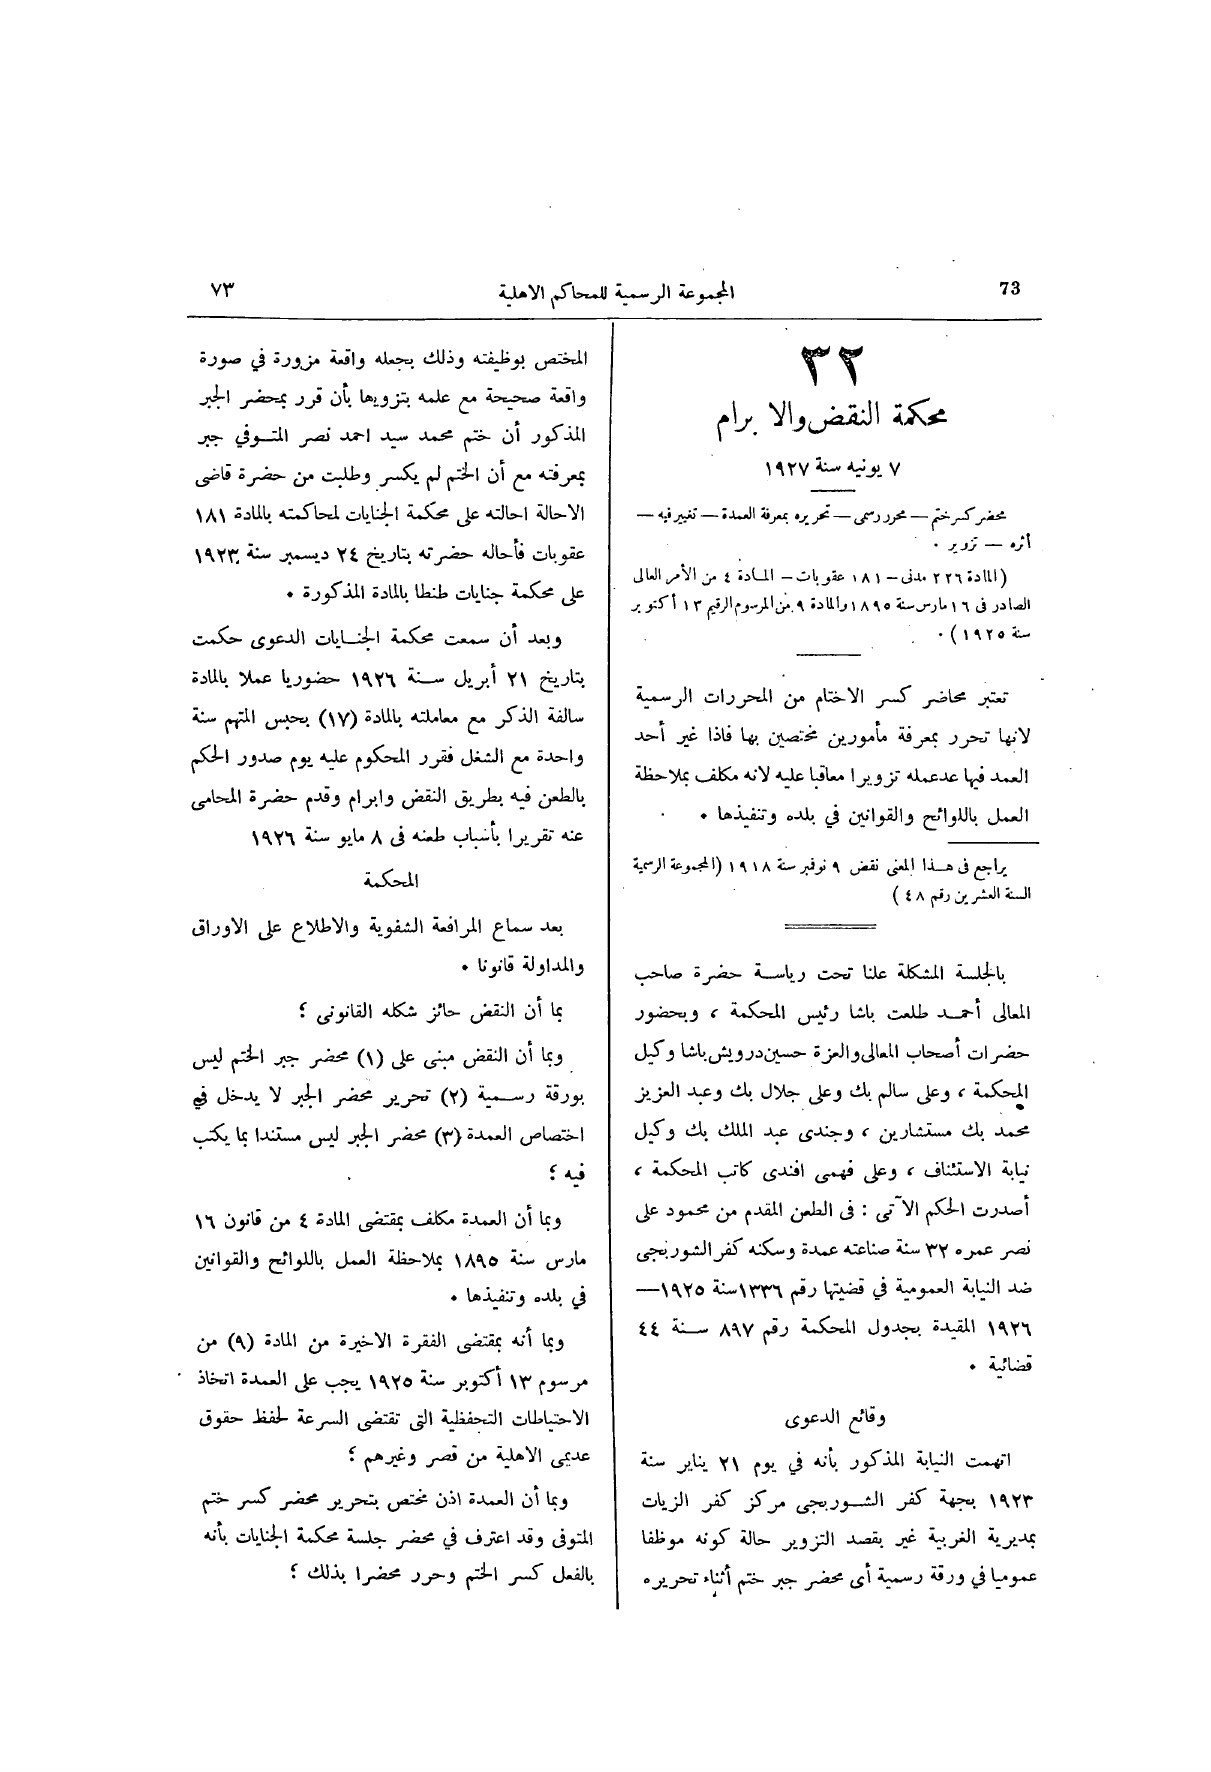 73
المجموعة الرسمية للمحاكم الاهلية
٧٣
٣٢
محكمة النقض والابرام
٧ يونيه سنة ١٩٢٧
محضر كسر ختم — محرر رسمى — تحريره بمعرفة العمدة — تغيير فيه —
أثره — تزوير .
(المادة ٢٢٦ مدنى — ١٨١ عقوبات — المادة ٤ من الأمر العالى
الصادر فى ١٦ مارس سنة ١٨٩٥ والمادة ٩ من المرسوم الرقيم ١٣ أكتوبر
سنة ١٩٢٥) .
تعتبر محاضر كسر الاختام من المحررات الرسمية
لانها تحرر بمعرفة مأمورين مختصين بها فاذا غير أحد
العمد فيها عد عمله تزويرا معاقبا عليه لانه مكلف بملاحظة
العمل باللوائح والقوانين في بلده وتنفيذها .
يراجع فى هذا المعنى نقض ٩ نوفبر سنة ١٩١٨ (المجموعة الرسمية
السنة العشرين رقم ٤٨)
بالجلسة المشكلة علنا تحت رياسة حضرة صاحب
المعالى أحمد طلعت باشا رئيس المحكمة ، وبحضور
حضرات أصحاب المعالى والعزة حسين درويش باشا وكيل
المحكمة ، وعلى سالم بك وعلى جلال بك وعبد العزيز
محمد بك مستشارين ، وجندى عبد الملك بك وكيل
نيابة الاستئناف ، وعلى فهمى افندى كاتب المحكمة ،
أصدرت الحكم الآتى : فى الطعن المقدم من محمود على
نصر عمره ٣٢ سنة صناعته عمدة وسكنه كفر الشوربجى
ضد النيابة العمومية في قضيتها رقم ١٣٣٦ سنة ١٩٢٥—
١٩٢٦ المقيدة بجدول المحكمة رقم ٨٩٧ سنة ٤٤
قضائية .
وقائع الدعوى
اتهمت النيابة المذكور بأنه في يوم ٢١ يناير سنة
١٩٢٣ بجهة كفر الشوربجى مركز كفر الزيات
بمديرية الغربية غير بقصد التزوير حالة كونه موظفا
عموميا في ورقة رسمية أى محضر جبر ختم أثناء تحريره
المختص بوظيفته وذلك بجعله واقعة مزورة في صورة
واقعة صحيحة مع علمه بتزويرها بأن قرر بمحضر الجبر
المذكور أن ختم محمد سيد احمد نصر المتوفي جبر
بمعرفته مع أن الختم لم يكسر وطلبت من حضرة قاضى
الاحالة احالته على محكمة الجنايات لمحاكمته بالمادة ١٨١
عقوبات فأحاله حضرته بتاريخ ٢٤ ديسمبر سنة ١٩٢٣
على محكمة جنايات طنطا بالمادة المذكورة .
وبعد أن سمعت محكمة الجنايات الدعوى حكمت
بتاريخ ٢١ أبريل سنة ١٩٢٦ حضوريا عملا بالمادة
سالفة الذكر مع معاملته بالمادة (١٧) بحبس المتهم سنة
واحدة مع الشغل فقرر المحكوم عليه يوم صدور الحكم
بالطعن فيه بطريق النقض وابرام وقدم حضرة المحامى
عنه تقريرا بأسباب طعنه فى ٨ مايو سنة ١٩٢٦
المحكمة
بعد سماع المرافعة الشفوية والاطلاع على الاوراق
والمداولة قانونا .
بما أن النقض حائز شكله القانونى ؛
وبما أن النقض مبنى على (١) محضر جبر الختم ليس
بورقة رسمية (٢) تحرير محضر الجبر لا يدخل في
اختصاص العمدة (٣) محضر الجبر ليس مستندا بما يكتب
فيه ؛
وبما أن العمدة مكلف بمقتضى المادة ٤ من قانون ١٦
مارس سنة ١٨٩٥ بملاحظة العمل باللوائح والقوانين
في بلده وتنفيذها .
وبما أنه بمقتضى الفقرة الاخيرة من المادة (٩) من
مرسوم ١٣ أكتوبر سنة ١٩٢٥ يجب على العمدة اتخاذ
الاحتياطات التحفظية التى تقتضى السرعة لحفظ حقوق
عديمى الاهلية من قصر وغيرهم ؛
وبما أن العمدة اذن مختص بتحرير محضر كسر ختم
المتوفى وقد اعترف في محضر جلسة محكمة الجنايات بأنه
بالفعل كسر الختم وحرر محضرا بذلك ؛